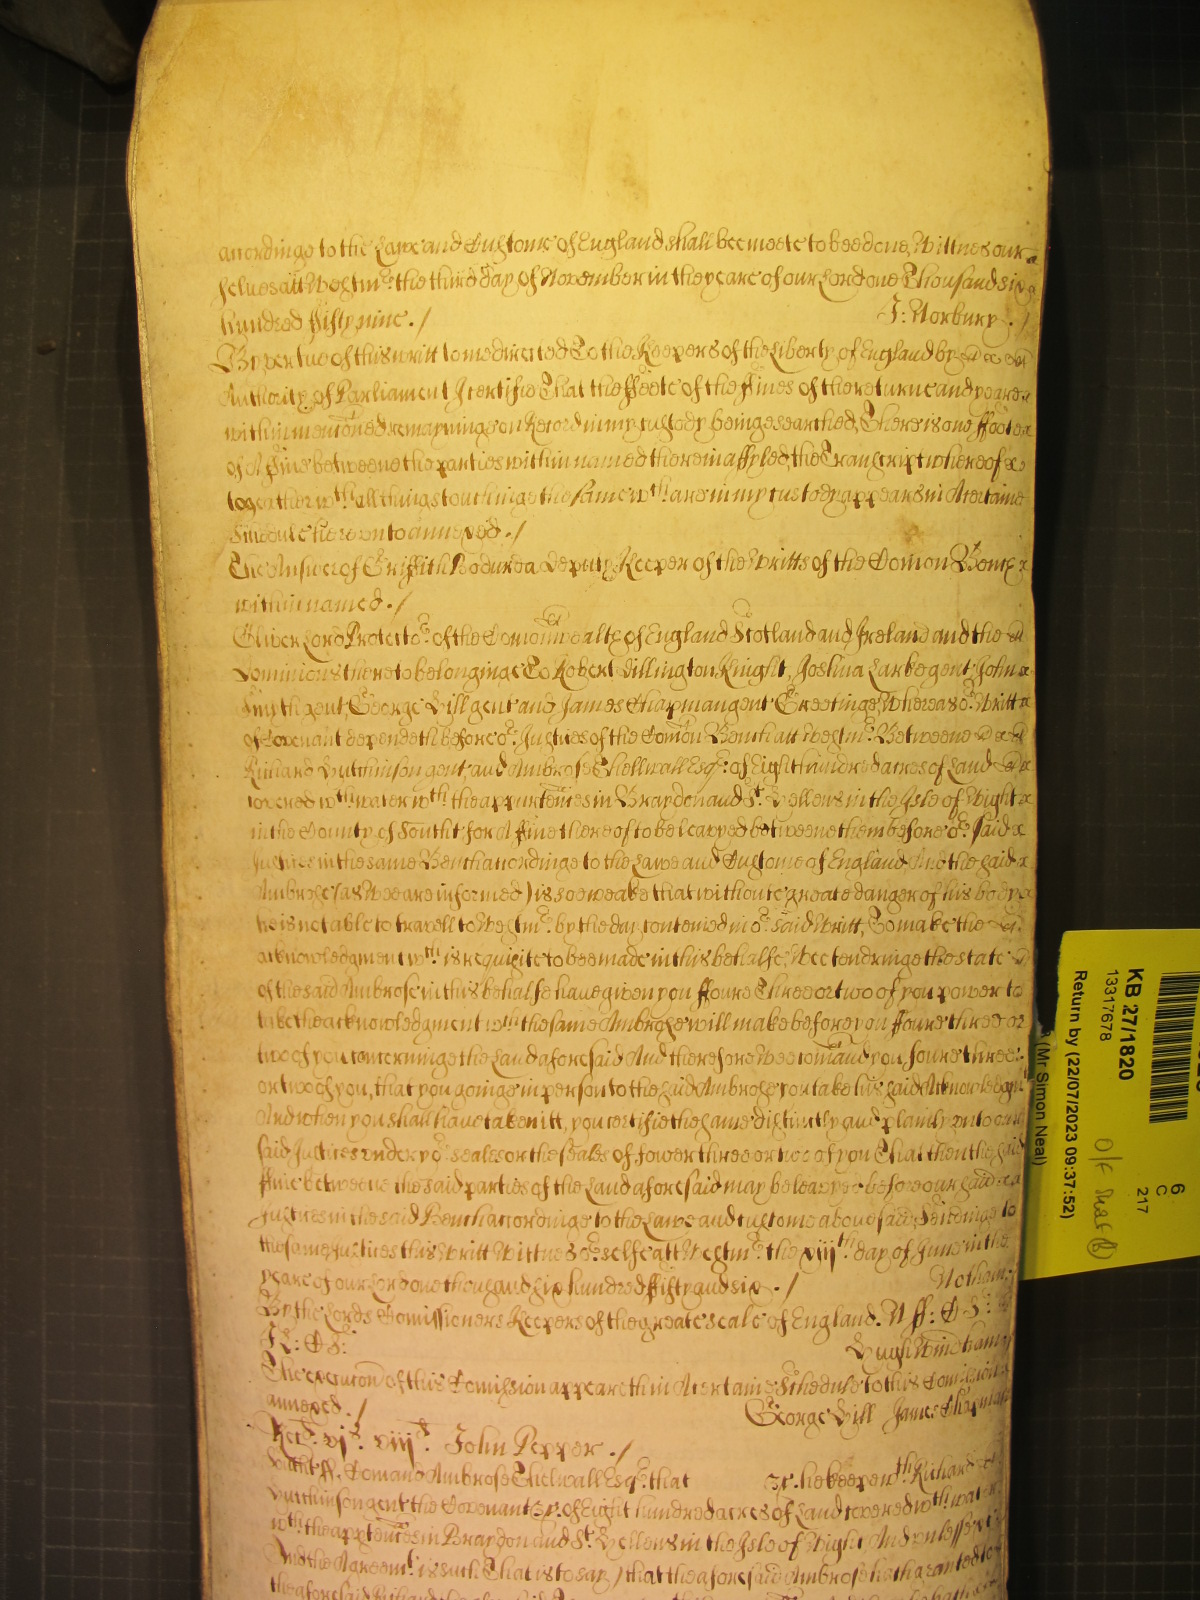 accordinge to the Lawe and Custome of England shall bee meete to bee done, Wittnes our
selves att Westmr. the third day of November in the yeare of our Lord one Thousand six
hundred fifty nine ./ J: Norbury ./
By vertue of this writt to me directed To the Keepers of the Liberty of England by
Authority of Parliament I certifie That the ffeete of the ffines of the returne and yeare
within mencioned remayninge on Record in my custody beinge searched, There is one ffoote
of A ffine betweene the parties within named therein affyled, the Transcript whereof
together wth. all things touchinge the same wch. are in my custody appeares in A certaine
Scedule hereonto annexed ./
The Answer of Griffith Bodurda deputy Keeper of the Writts of the Comon Bench
within named ./
Oliver Lord Protector. of the Comonwealth of England Scotland and Ireland and the
dominions thereto belonginge To Robert Dillington Knight, Joshua Larke gent John
Smyth gent, George Hill gent and James Chapman gent Greetinge, Whereas or. Writt
of Covenant dependeth before or. Justices of the Comon Bench att Westmr. Betweene
Richard Hutchinson gent and Ambrose Thellwall Esqr. of Eight hundred acres of Land
covered wth water wth. the appurtences in Braydon and St. Hellens in the Isle of Wight
in the County of Southt. for A ffine thereof to be leavyed betweene them before or. said
Justices in the same Bench accordinge to the Lawe and Custome of England And the said
Ambrose (as Wee are informed) is soe weake that without greate danger of his body
he is not able to travell to Westmr. by the day conteined in or. said Writt, To make the
acknowledgment wch. is requisite to bee made in this behalfe, Wee tendringe the state
of the said Ambrose in this behalfe have given you ffoure Three or two of you power to
take the acknowledgment wch the same Ambrose will make before you ffoure three or
two of you concerninge the Land aforesaid And therefore Wee comaund you, foure three
or two of you, that you goinge in person to the said Ambrose you take his said Acknowledgmt
And when you shall have taken itt, you certifie the same distinctly and plainly unto our
said Justices under yor. seales or the seales of fower three or two of you That then the said
ffine betweene the said parties of the Land aforesaid may be leavyed before our said
Justices in the said Bench accordinge to the Lawe and custome abovesaid, Sendinge to
the same Justices this Writt Wittnes or. selfe att Westmr. the viijth. day of June in the
yeare of our Lord one thousand six hundred fifty and six ./
By the Lords Comissioners Keepers of the greate seale of England. N ff: C S:
J L: C S: Hugh Windham
The execucion of this Comission appeareth in A certaine Schedule to this Comission
annexed ./ George Hill James Chapman
Recd. vjs. viijd. John Pepper ./
Southt. ss. Comand Ambrose Thelwall Esqr. that &c. he keepe wth. Richard
Hutchinson gent the Covenant &c. of Eight hundred acres of Land covered wth. water
wth. the appurtences in Braydon and St. Hellens in the Isle of Wight And unlesse &c
And the Agreemt. is such That is to say / that the aforesaid Ambrose hath granted to
the aforesaid Richard
KB 27/1820
13317678
Return by (22/07/2023 09:37:52)
(Mr Simon Neal)
6
C
217